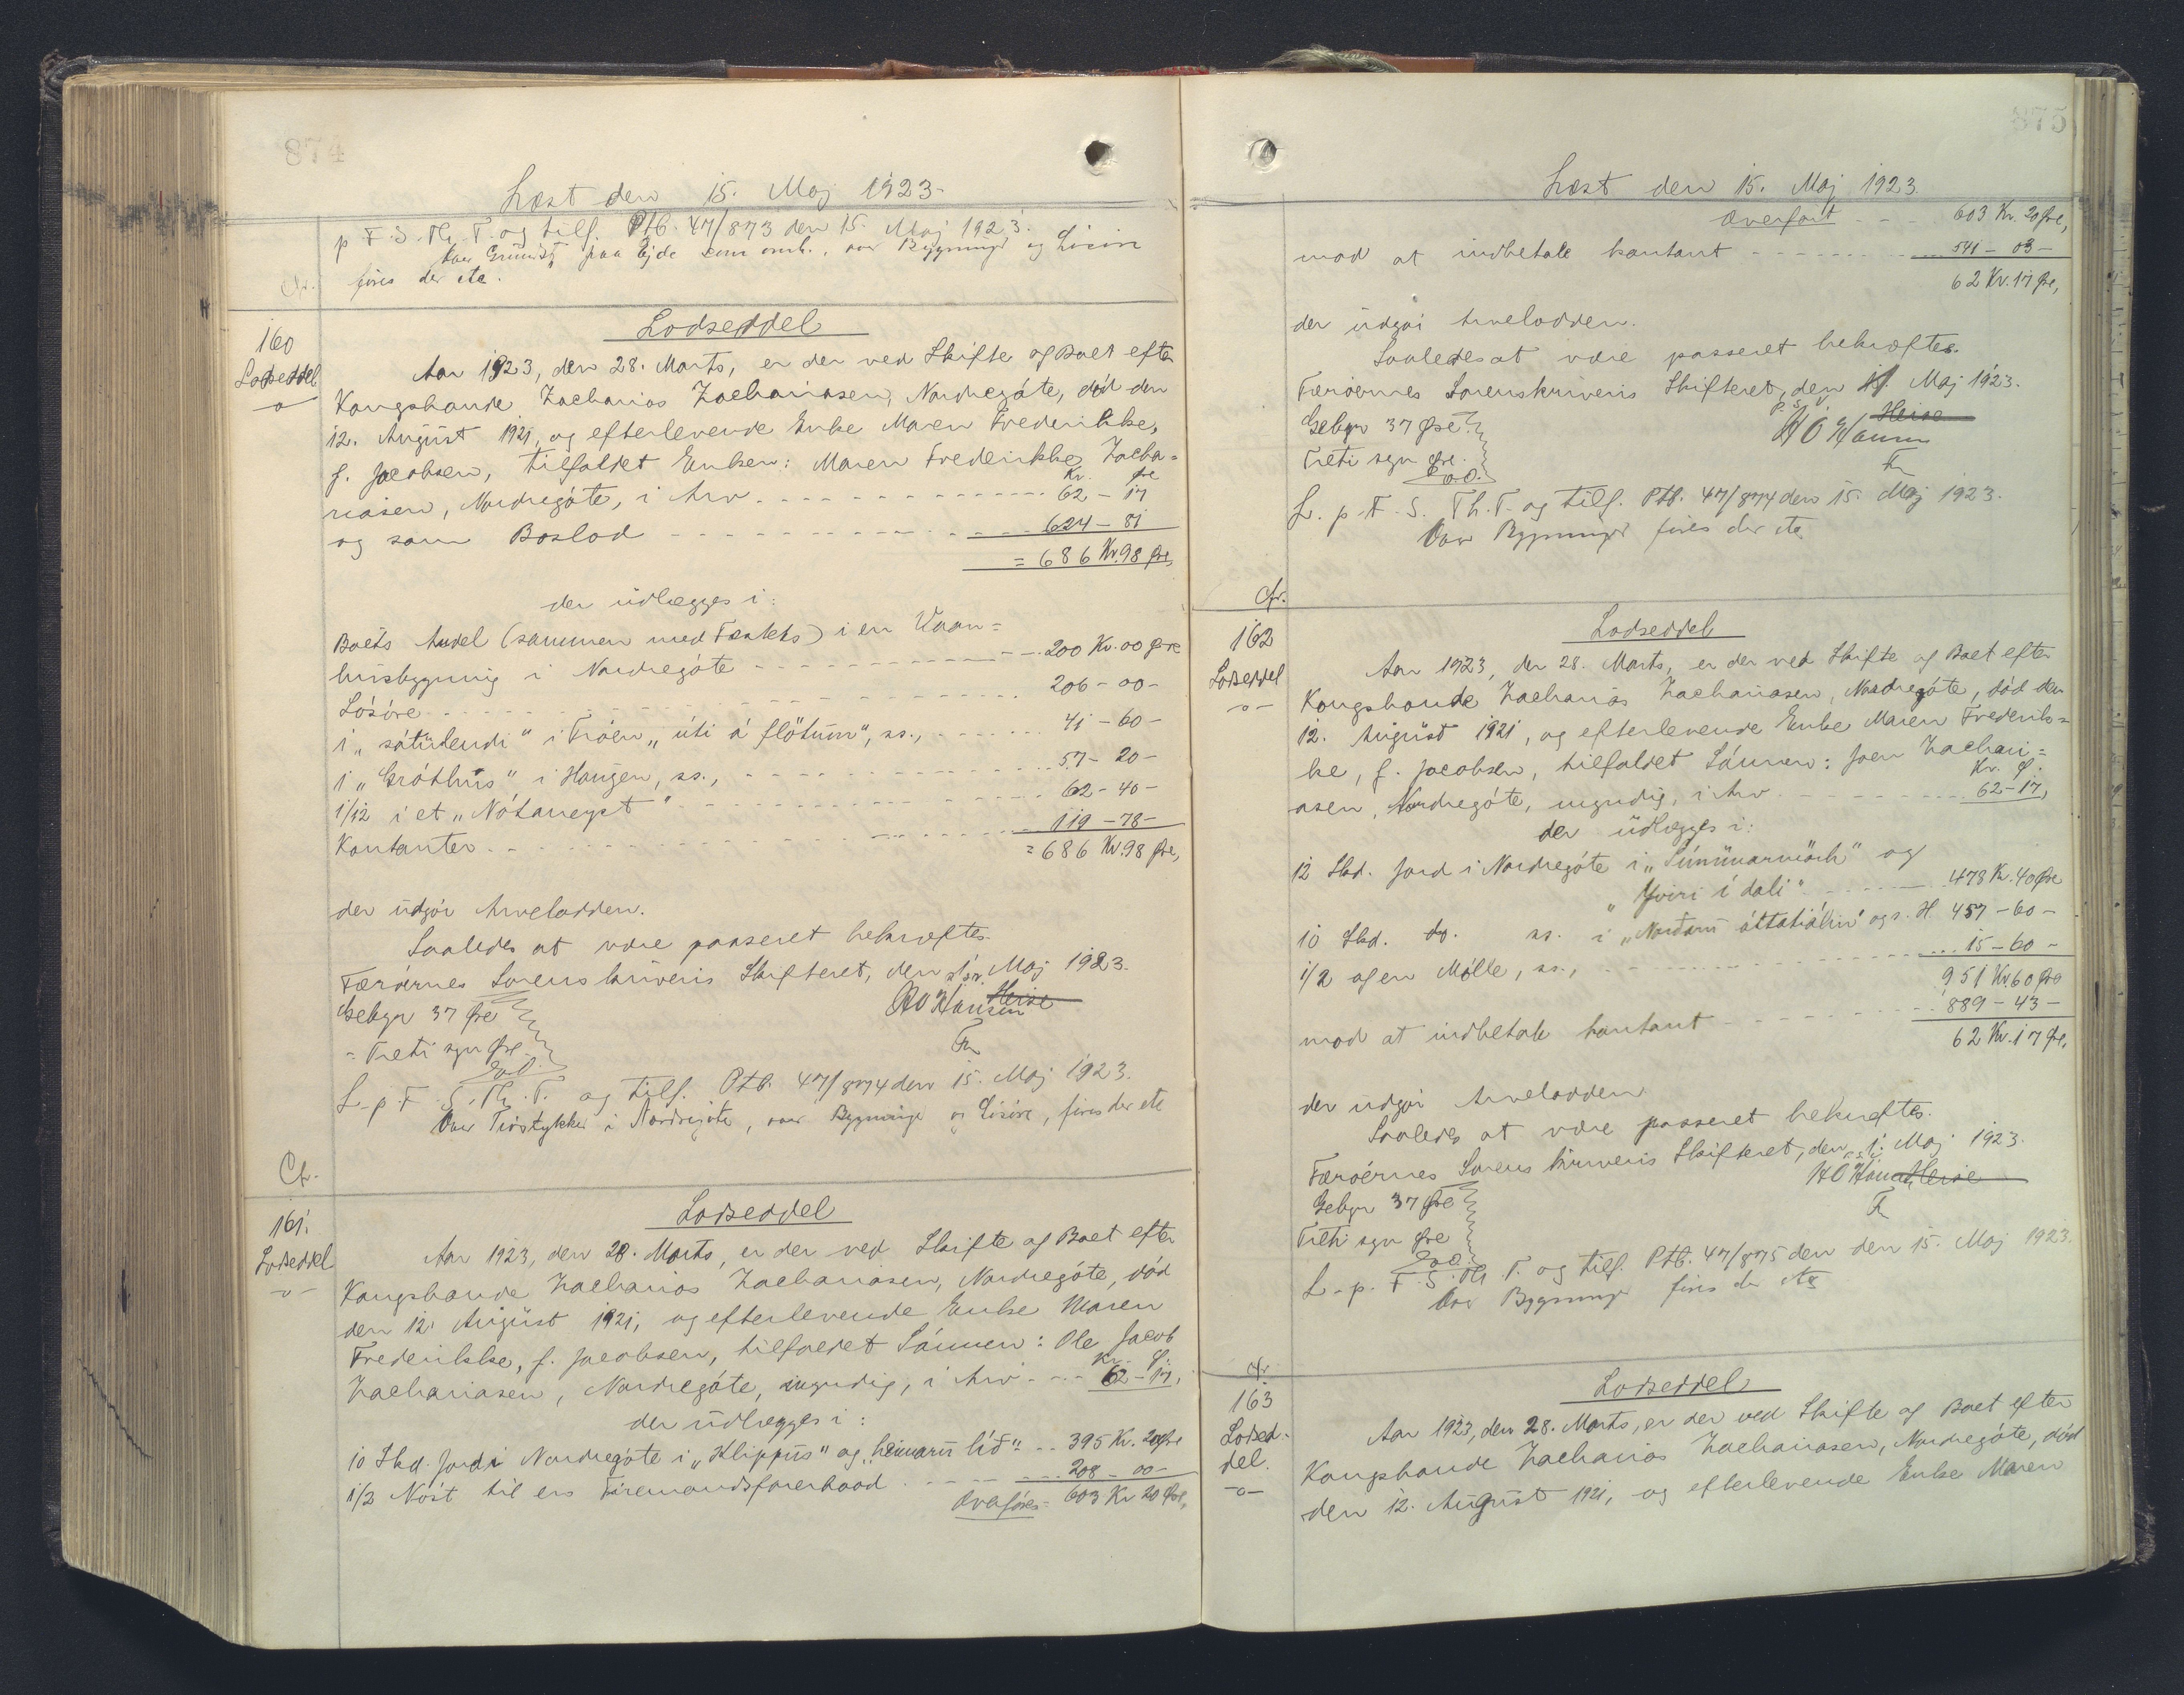 874
Læst den 15. Maj 1923.
p. F. S. Th. T. og tilf. Ptb. 47/873 den 15. Maj 1923.
paa Ejde som omh., over Bygninger og Lösöre
föres der ete.
Cfr.
160
Lodseddel
Lodseddel
Aar 1923, den 28. Marts, er der ved Skifte af Boet efter
Kongsbonde Zacharias Zachariasen, Nordregöte, död den
12. August 1921, og efterlevende Enke Maren Frederikke,
f. Jacobsen, tilfaldet Enken: Maren Frederikke Zacha=
Kr. Øre
riasen, Nordregöte, i Arv 62 - 17
og som Boslod 624 - 81
= 686 Kr. 98 Øre,
der udlægges i:
Boets Andel (sammen med Fæstets) i en Vaan=
husbygning i Nordregöte 200 Kr. 00 Øre
Lösöre 206 - 00 -
i „sátulendi" i Tröen „úti á flötum", ss., 41 - 60 -
1 „Gróthús", i Haugen, ss., 57 - 20 -
1/12 i et „Nótaneyst" 62 - 40 -
Kontanter 119 - 78 -
= 686 Kr. 98 Øre,
der udgör Arvelodden.
Saaledes at være passeret bekræftes.
Færöernes Sorenskriveris Skifteret, den 1. Maj 1923.
Gebyr 37 Øre
Heise
= Treti syv Øre
L. p. F. S. Th. T. og tilf. Ptb. 47/874 den 15. Maj 1923.
Over i Nordregöte, over Bygninger og Lösöre, föres der ete
Cfr.
161.
Lodseddel
Lodseddel
Aar 1923, den 28. Marts, er der ved Skifte af Boet efter
Kongsbonde Zacharias Zachariasen, Nordregöte, död
den 12. August 1921, og efterlevende Enke Maren
Frederikke, f. Jacobsen, tilfaldet Sönnen: Ole Jacob
Kr. Ø.
Zachariasen, Nordregöte, myndig, i Arv 62 - 17,
der udlægges i:
10 Skd. Jord i Nordregöte i „Klippus" og „heimaru líð" 395 Kr. 20 Øre
1/2 Nöst til en Firemandsfarerbaad 208 - 00 -
Overföres = 603 Kr 20 Øre,
875
Læst den 15. Maj 1923.
Overfört 603 Kr. 20 Øre,
mod at indbetale kontant 541 - 03 -
62 Kr. 17 Øre,
der udgör Arvelodden.
Saaledes at være passeret bekræftes.
Færöernes Sorenskriveris Skifteret, den 1. Maj 1923.
Gebyr 37 Øre
Heise
Treti syv Øre
L. p. F. S. Th. T. og tilf. Ptb. 47/874 den 15. Maj 1923.
Over Bygninger föres der ete
Cfr.
162
Lodseddel
Lodseddel
Aar 1923, den 28. Marts, er der ved Skifte af Boet efter
Kongsbonde Zacharias Zachariasen, Nordregöte, död den
12. August 1921, og efterlevende Enke Maren Frederik=
ke, f. Jacobsen, tilfaldet Sönnen: Joen Zachari=
Kr. Ø.
asen, Nordregöte, myndig, i Arv 62 - 17,
der udlægges i:
12 Skd. Jord i Nordregöte i og
„Yviri í dali" 478 Kr. 40 Øre
10 Skd. do. ss. i „Norðaru og s. H. 457 - 60 -
1/2 af en Mölle, ss., 15 - 60 -
951 Kr. 60 Øre
mod at indbetale kontant 889 - 43 -
62 Kr. 17 Øre,
der udgör Arvelodden
Saaledes at være passeret bekræftes.
Færöernes Sorenskriveris Skifteret, den 1. Maj 1923.
Gebyr 37 Øre
Heise
Treti syv Øre
L. p. F. S. Th. T. og tilf. Ptb. 47/875 den den 15. Maj 1923.
Over Bygninger föres der ete
Cfr
163
Lodsed-
del.
Lodseddel
Aar 1923, den 28. Marts, er der ved Skifte af Boet efter
Kongsbonde Zacharias Zachariasen, Nordregöte, död
den 12. August 1921, og efterlevende Enke Maren